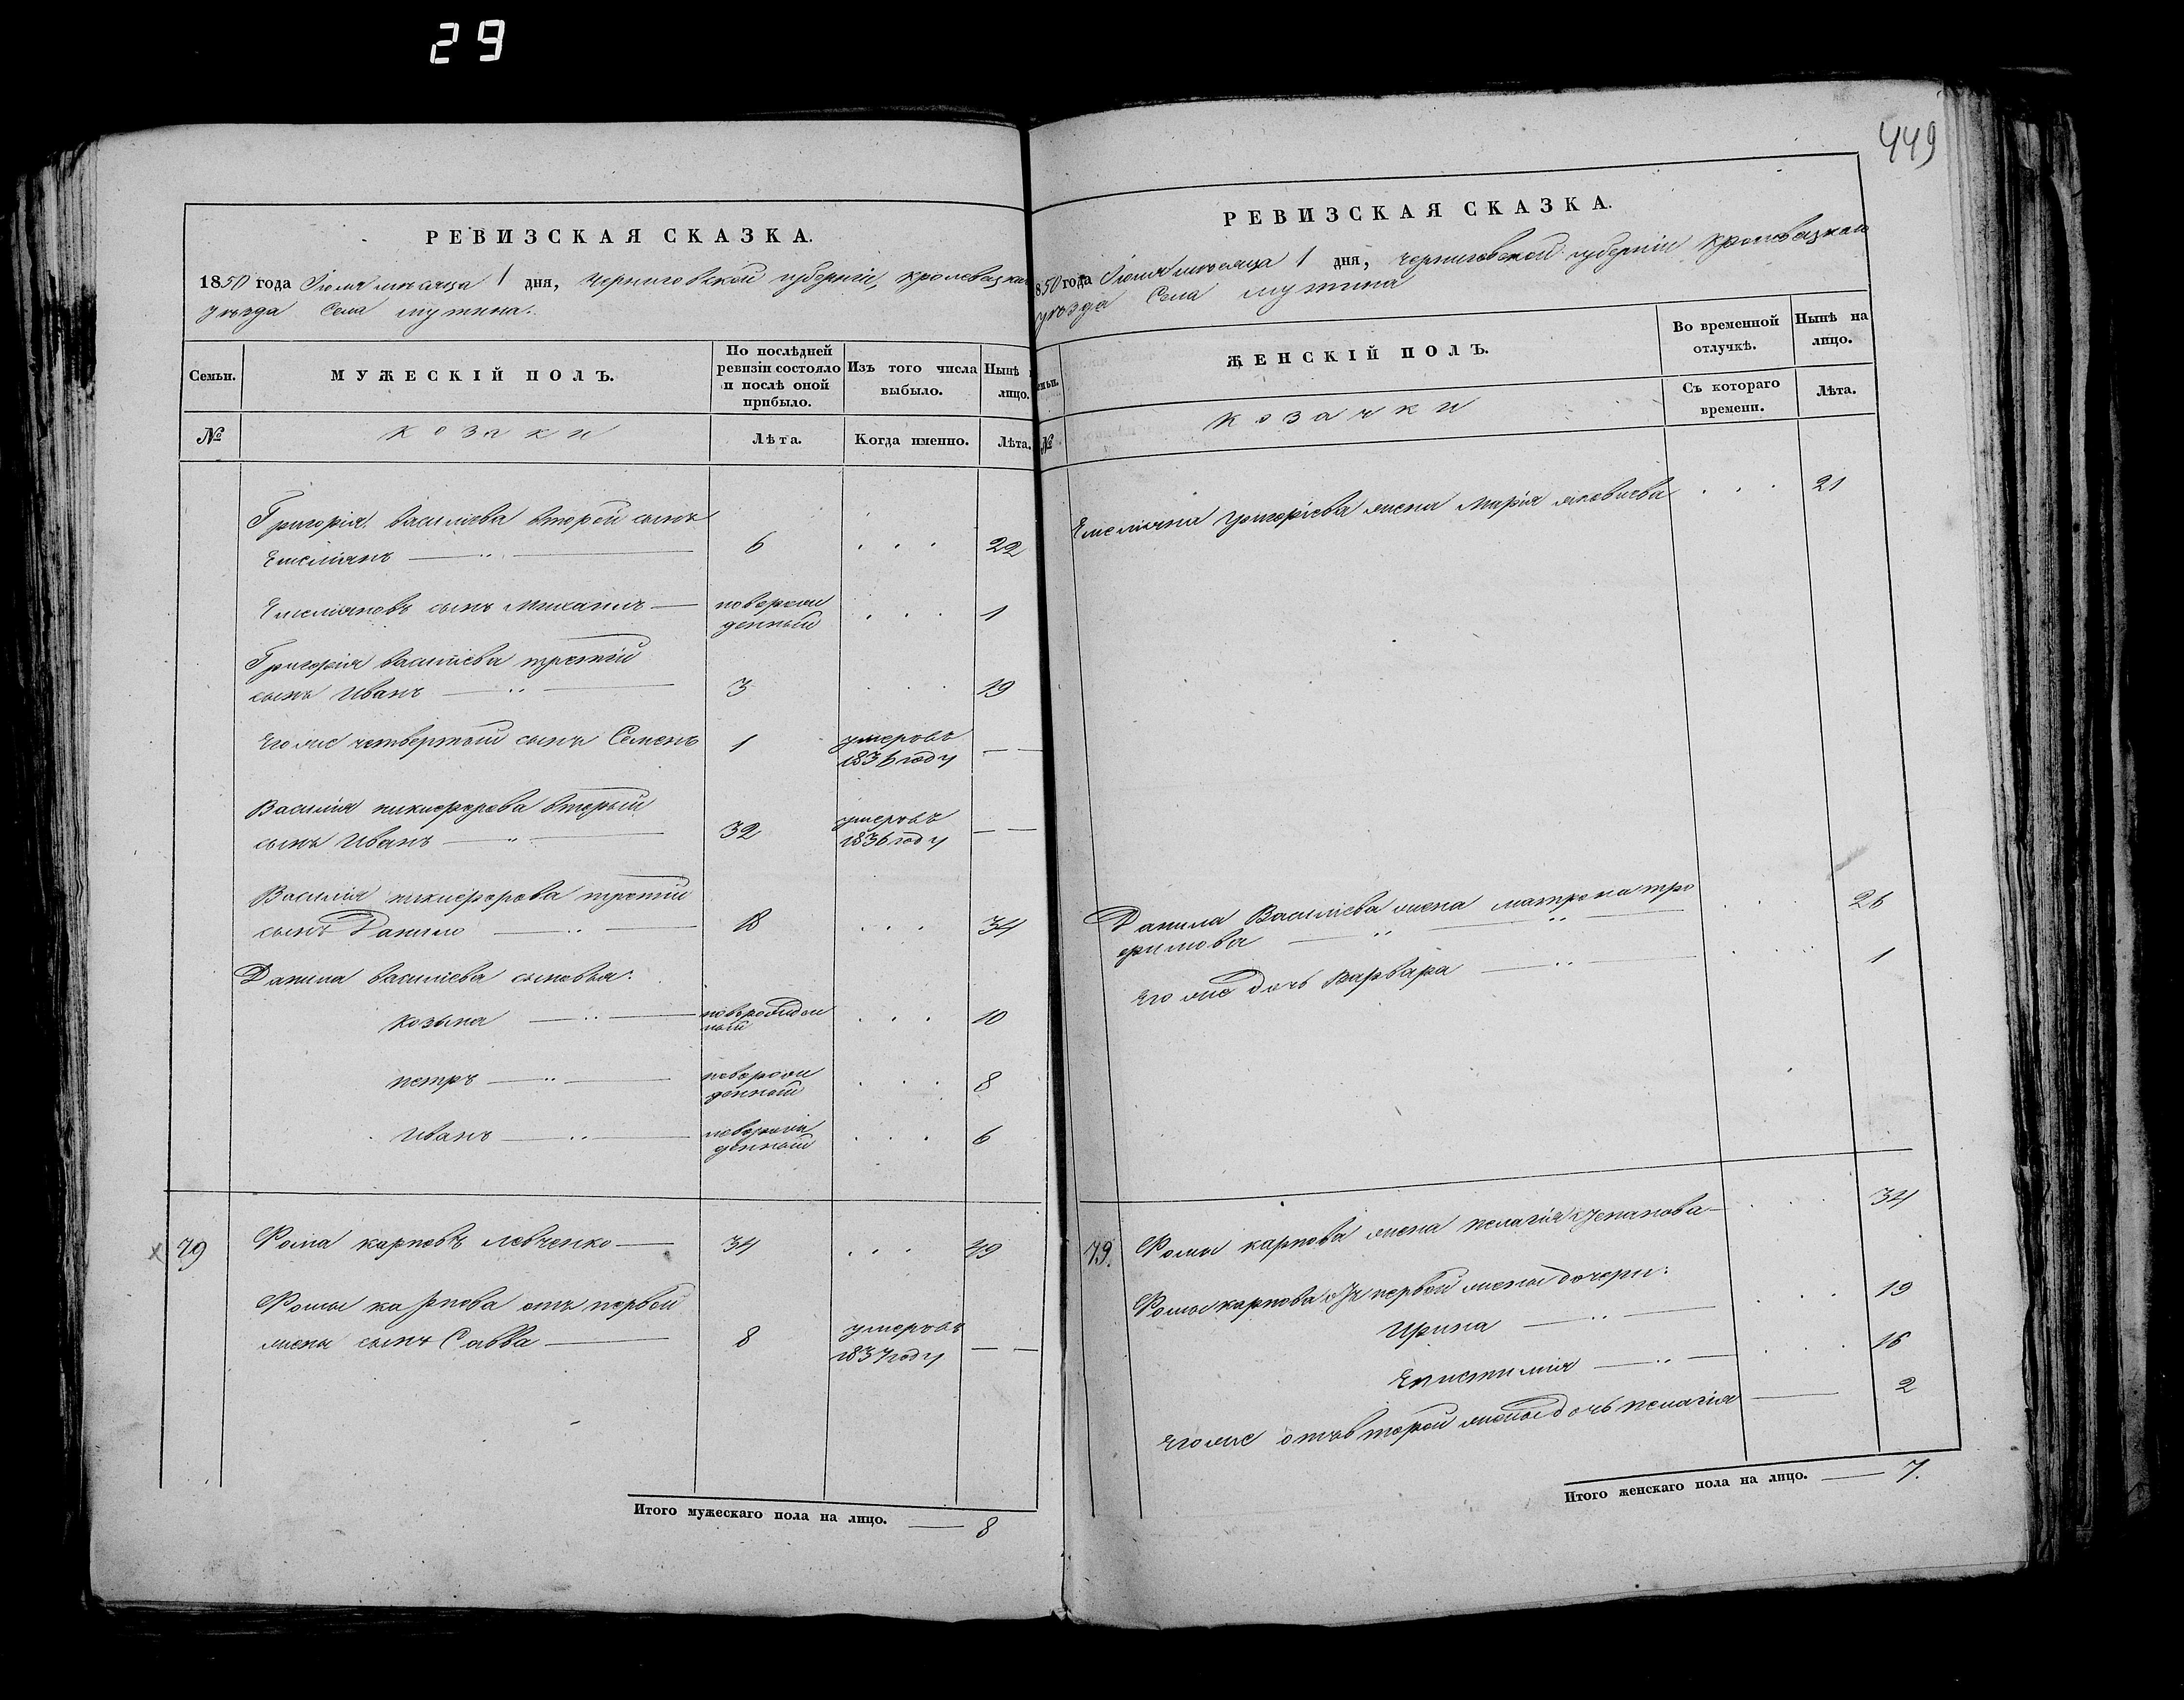 29
449
РЕВИЗСКАЯ СКАЗКА.
1850 года Іюля мѣсяца 1 дня, Черниговской губерніи, Кролевецкаго
уѣзда Села Мутина.
Семьи.
МУЖЕСКІЙ ПОЛЪ.
По послѣдней
ревизіи состояло
и послѣ оной
прибыло.
Изъ того числа
выбыло.
Нынѣ
лицо.
№
козаки
Лѣта.
Когда именно.
Лѣта.
Григорія Василіева второй сынъ
Емеліянъ 6 22
Емеліяновъ сынъ Михаилъ новорож 1
денный
Григорія Василіева третій
сынъ Иванъ 3 19
Его же четвертый сынъ Семенъ 1 умеръ въ
1836 году
Василія Никифорова вторый
сынъ Иванъ 32 умеръ въ
1836 году
Василія Никифорова третій
сынъ Данило 18 34
Данила Василіева сыновья:
Козьма новорожден 10
ный
Петръ новорож 8
денный
Иванъ новорож 6
денный
79 Фома Карповъ Левченко 34 49
Фомы Карпова отъ первой
жены сынъ Савва 8 умеръ въ
1837 году
Итого мужескаго пола на лицо. 8
РЕВИЗСКАЯ СКАЗКА.
850 года Іюля мѣсяца 1 дня, Черниговской губерніи Кролевецкаго
уѣзда Села Мутина
ЖЕНСКІЙ ПОЛЪ.
Во временной
отлучкѣ.
Нынѣ на
лицо.
Съ котораго
времени.
Лѣта.
№
козачки
Емеліяна Григоріева жена Марія Яковлева 21
Данила Василіева жена Матрена Тро 26
фимова
Его же дочь Варвара 1
79. Фомы Карпова жена Пелагія Степанова 34
Фомы Карпова отъ первой жены дочери:
Ирина 19
Епистимія 16
Его же отъ второй жены дочь Пелагія 2
Итого женскаго пола на лицо. 7.